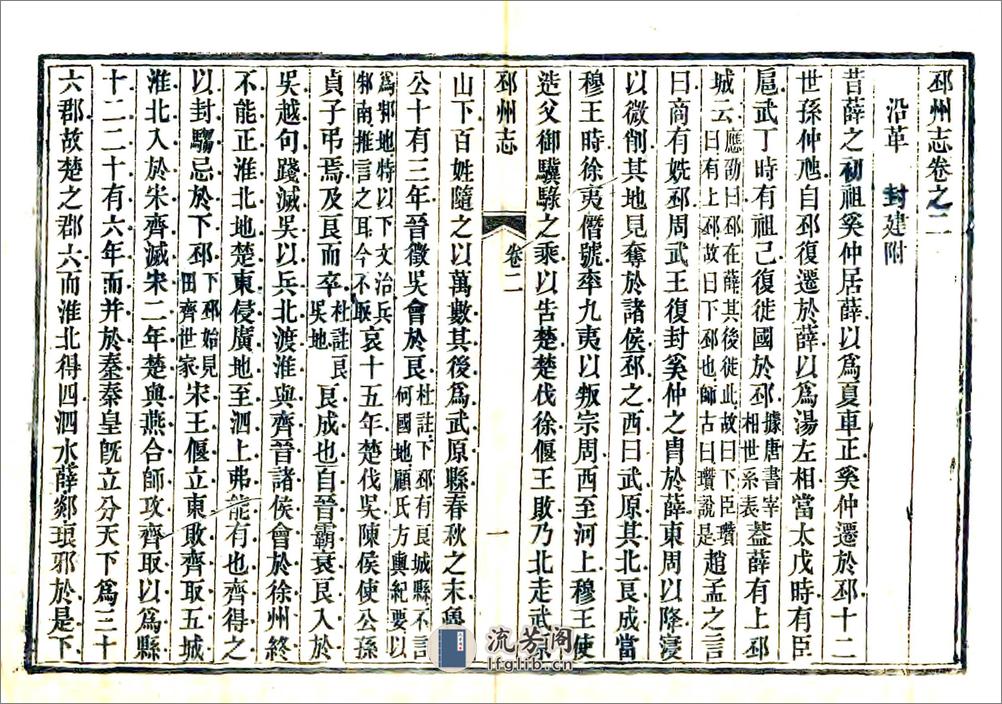 邳州志卷之二
沿革　封建附
昔薛之初祖奚仲居薛以爲夏車正奚仲遷於邳十二
世孫仲虺自邳復遷於薛以爲湯左相當太戊時有臣
扈武丁時有祖己復徙國於邳據唐書宰相世系表蓋薛有上邳
城云應劭曰邳在薛其後徙此故曰下臣瓚曰有上邳故曰下邳也師古曰瓚說是趙孟之言
曰商有姺邳周武王復封奚仲之冑於薛東周以降寖
以微削其地見奪於諸侯邳之西曰武原其北良成當
穆王時徐夷僭號率九夷以叛宗周西至河上穆王使
造父御驥騄之乘以告楚楚伐徐偃王敗乃北走武原
邳州志　卷二　一
山下百姓隨之以萬數其後爲武原縣春秋之末魯
公十有三年晉徵吳會於良杜註下邳有良城縣不言何國地顧氏方輿紀要以
爲邾地特以下文治兵邾南推言之耳今不取哀十五年楚伐吳陳侯使公孫
貞子弔焉及良而卒杜註良吳地良成也自晉霸衰良入於
吳越句踐滅吳以兵北渡淮與齊晉諸侯會於徐州終
不能正淮北地楚東侵廣地至泗上弗能有也齊得之
以封騶忌於下邳下邳始見田齊世家宋王偃立東敗齊取五城
淮北入於宋齊滅宋二年楚與燕合師攻齊取以爲縣
十二二十有六年而并於秦秦皇旣立分天下爲三十
六郡故楚之郡六而淮北得四泗水薛郯琅邪於是下
流芳阁
lfglib.cn